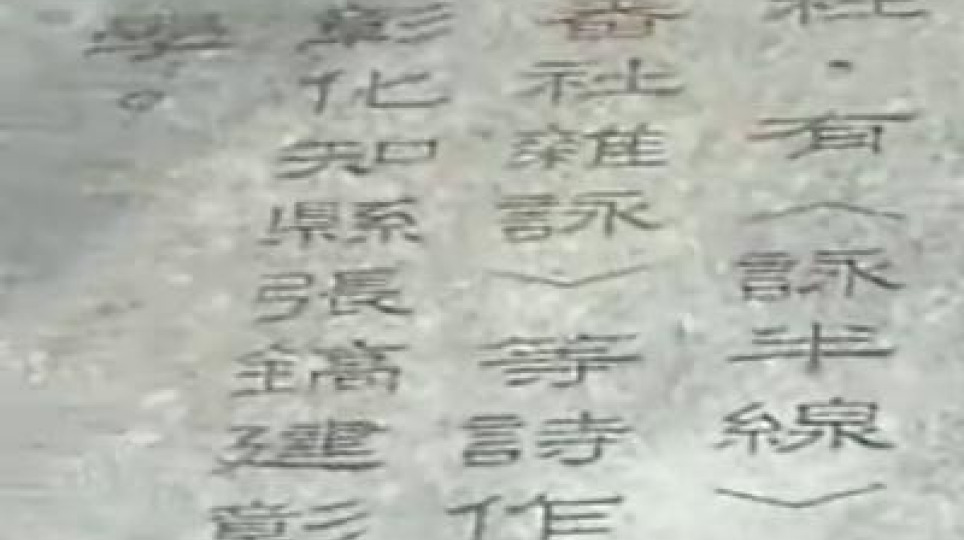 社·有〈詠半線〉
番社雜詠〉等詩作
彰化知縣張鎬建彰
學。